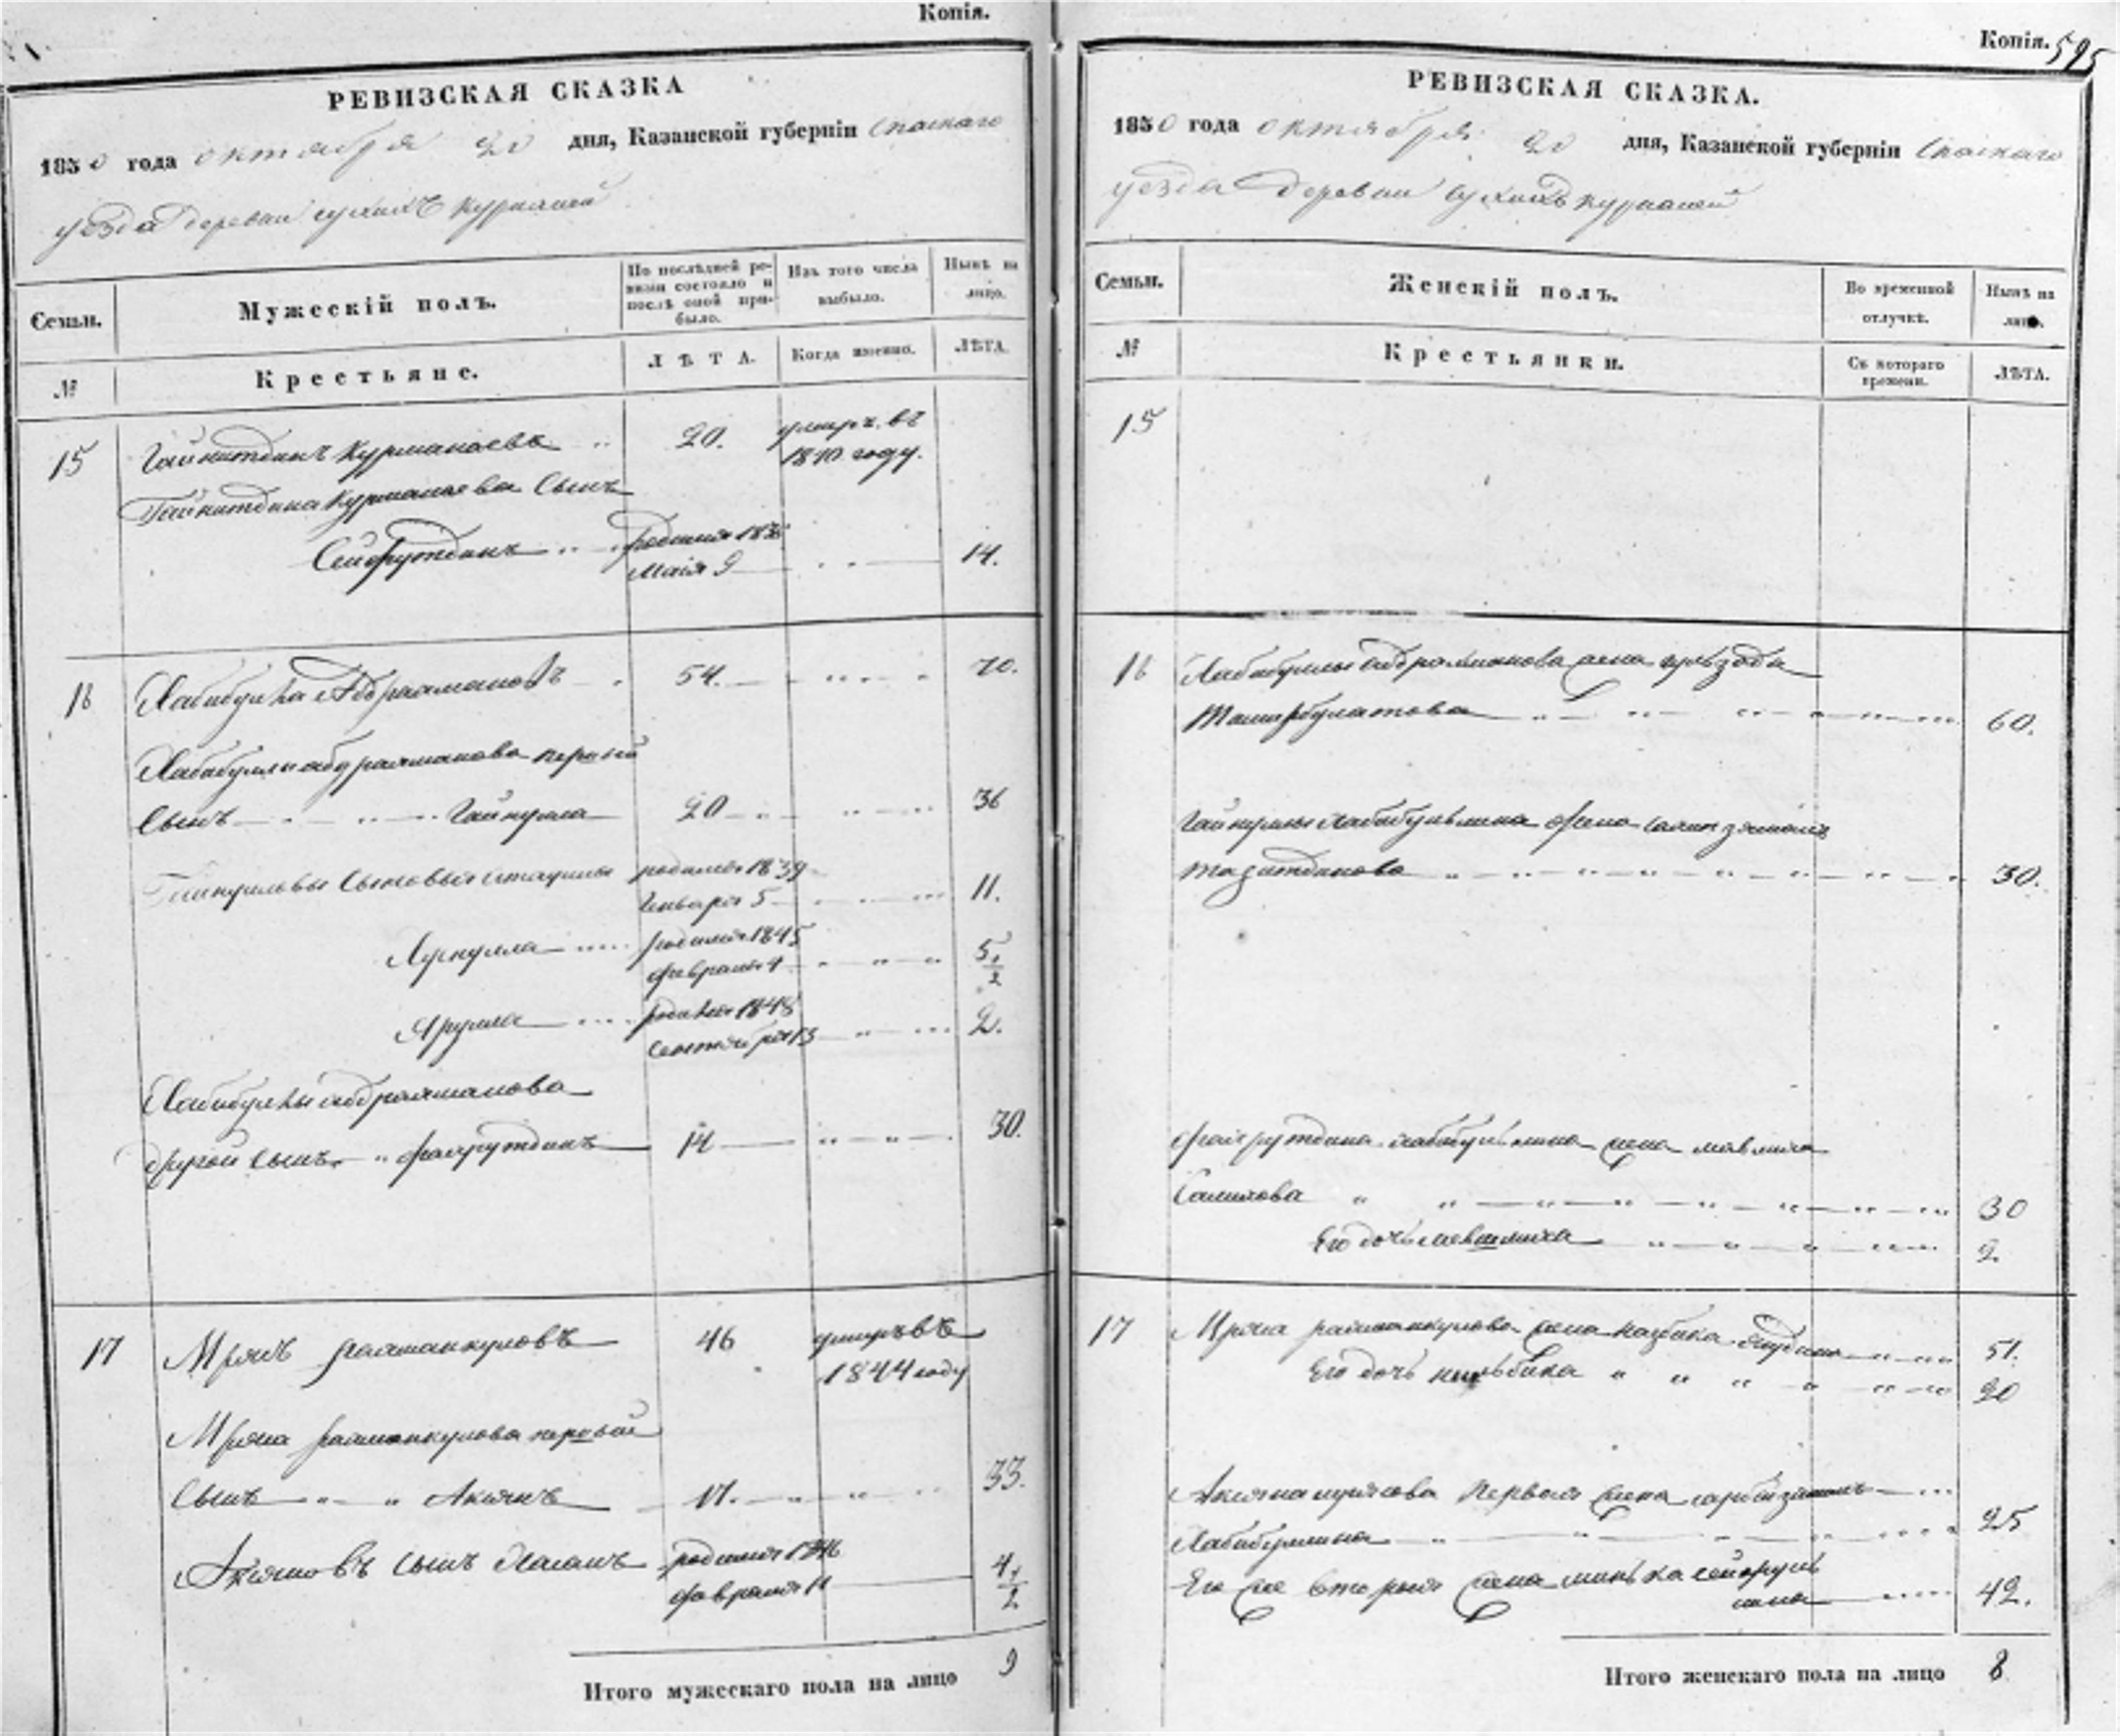 Копія.
РЕВИЗСКАЯ СКАЗКА
1850 года октября 20 дня, Казанской губерніи Спаскаго
уезда деревни сухихъ курналей
Семьи.
Мужескій полъ.
По послѣдней ре-
визіи состояло и
послѣ оной при-
было.
Изъ того числа
выбыло.
Нынѣ на
лицо.
№
Крестьяне.
ЛѢТА.
Когда именно.
ЛѢТА.
15 Гайнитдинъ Курманаевъ 20. умеръ въ
1840 году.
Гайнитдина Курманаева Сынъ
Сейфутдинъ родился 1836
маія 9 14.
16 Хабибулла Абдрахмановъ 54. 70.
Хабибуллы абдрахманова первый
Сынъ Гайнулла 20 36
Гайнулловы Сыновья родился 1839
Генваря 5 11.
Хуснулла родился 1845
февраля 4 5 1/2
родился 1848
Сентября 13 2.
Хабибуллы абдрахманова
другой Сынъ фахрутдинъ 14 30.
17 рахманкуловъ 46 умеръ въ
1844 году
рахманкулова первый
Сынъ Акзянъ 17. 33.
Сынъ Хасанъ родился 1846
февраля 11 4 1/2
Итого мужескаго пола на лицо 9
Копія. 595
РЕВИЗСКАЯ СКАЗКА.
1850 года октября 20 дня, Казанской губерніи Спаскаго
уезда деревни сухихъ курналей
Семьи.
Женскій полъ.
Во временной
отлучкѣ.
Нынѣ на
лицо.
№
Крестьянки.
Съ котораго
времени.
ЛѢТА.
15
16 Хабибуллы абдрахманова жена гульзада
Ташбулатова 60.
Гайнуллы хабибульлина жена
тазитдинова 30.
фахрутдина хабибульлина жена
Салихова 30
Его дочь 2
17 рахманкулова жена 51.
Его дочь 20
первая жена
Хабибуллина 25
Его же вторая жена 42.
Итого женскаго пола на лицо 8